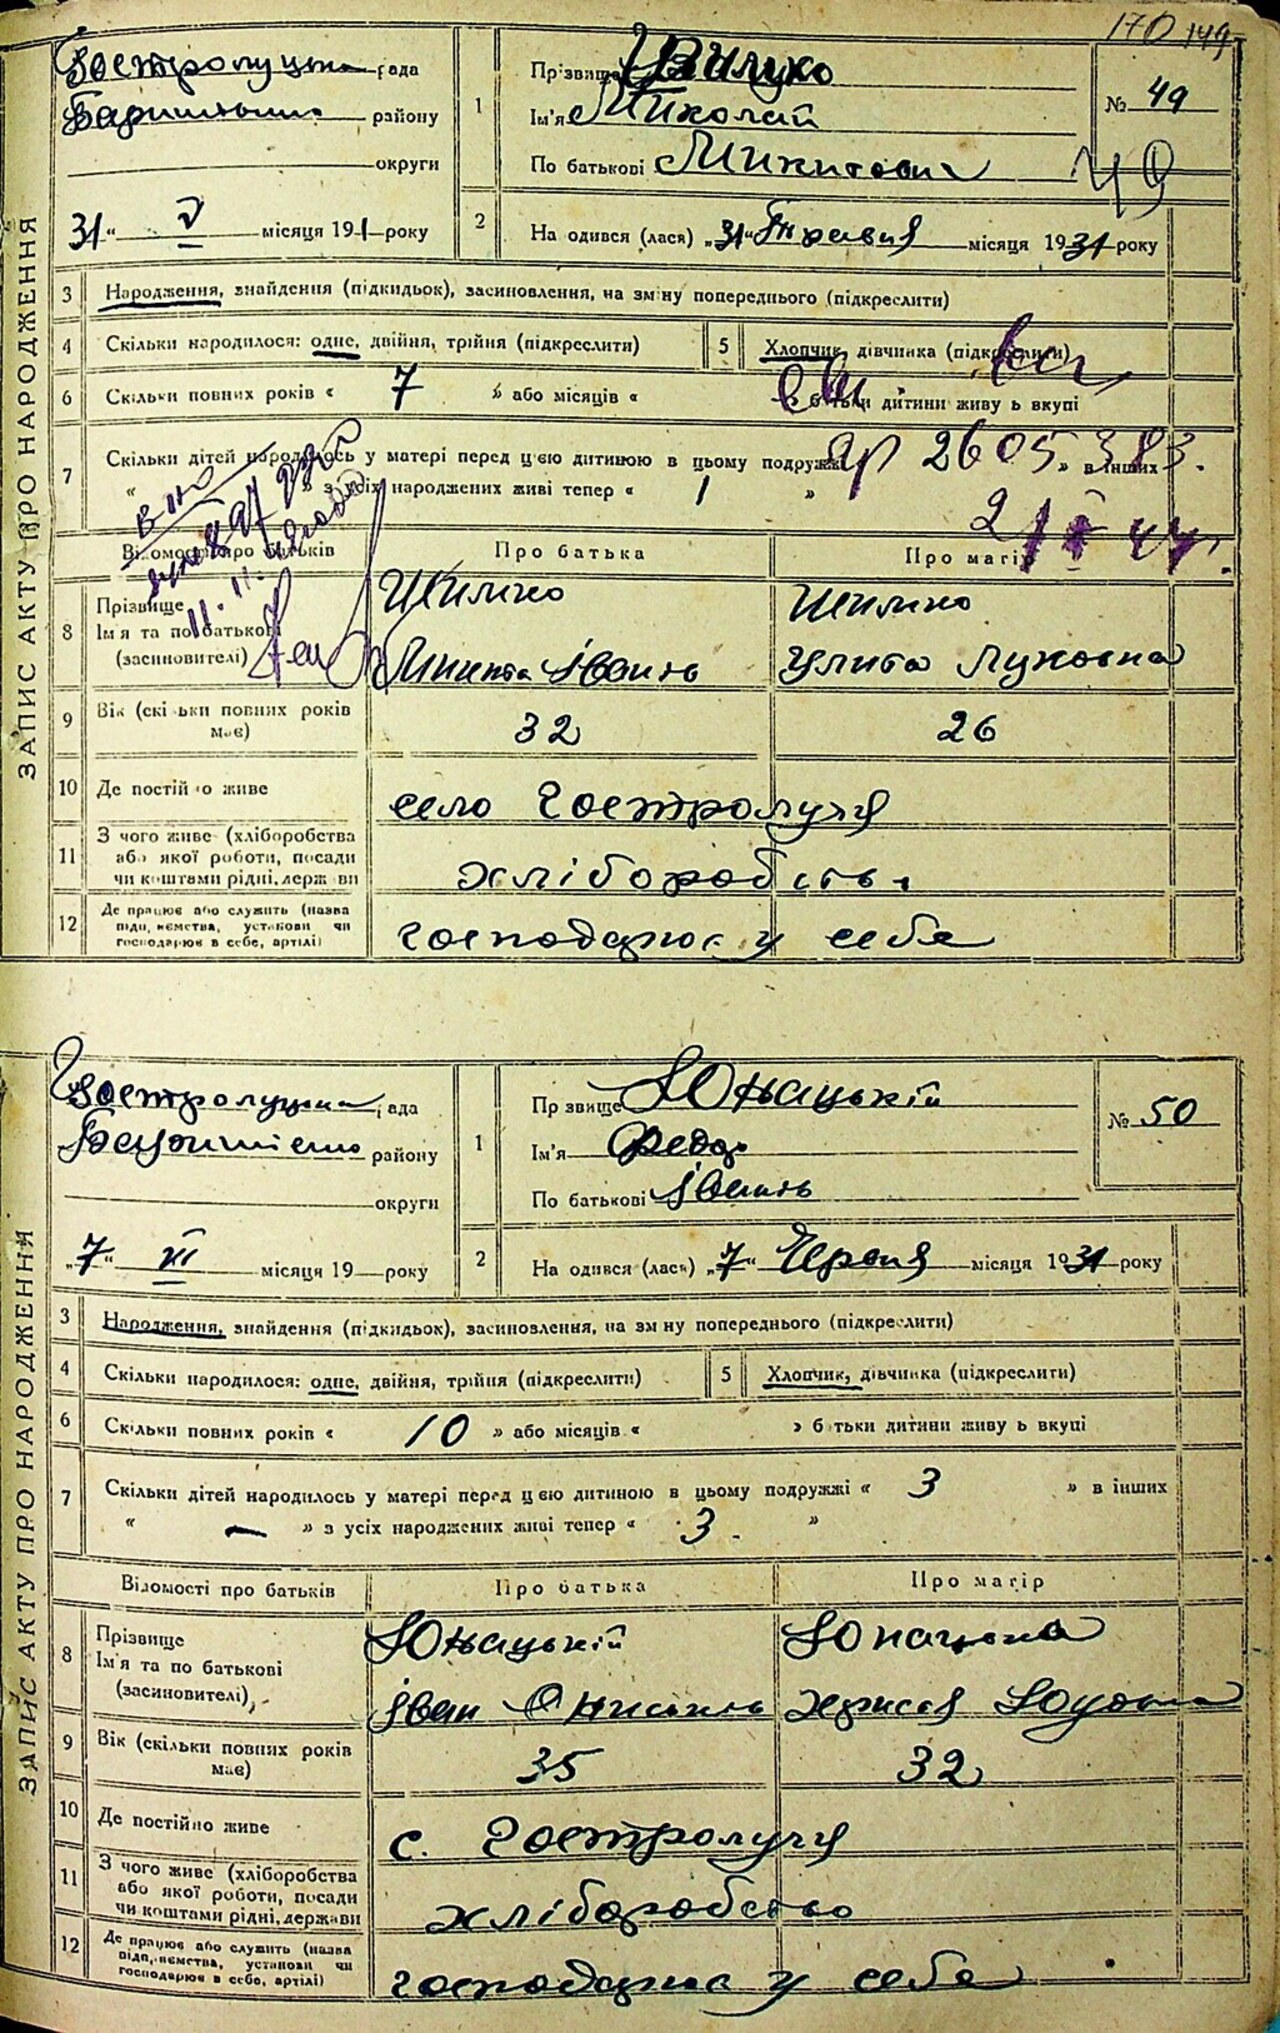 170 149
ЗАПИС АКТУ ПРО НАРОДЖЕННЯ
Гостролуцька рада
району
округи
1
Прізвище
Ім'я Миколай
По батькові Микитович
№ 49
49
31 " V місяця 1931 року
2
На одився (лася) „31" Травня місяця 1931 року
3 Народження, знайдення (підкидьок), засиновлення, на зміну попереднього (підкреслити)
4 Скільки народилося: одне, двійня, трійня (підкреслити)
5 Хлопчик, дівчинка (підкреслити)
6 Скільки повних років « 7 » або місяців « » батьки дитини живу ь вкупі
7 Скільки дітей народилось у матері перед цією дитиною в цьому подружжі » в інших
« » з усіх народжених живі тепер « 1 »
2605383.
Відомості про батьків
Про батька
Про матір
8 Прізвище
Ім'я та по батькові
(засиновителі)
Шилко
Микита Івань
Шилко
Улита Луковна
9 Вік (скі ьки повних років має)
32
26
10 Де постій о живе
село Гостролуччя
11 З чого живе (хліборобства
або якої роботи, посади
чи коштами рідні, держ ви
хліборобств
12 Де працює або служить (назва
підп, ємства, установи чи
господарює в себе, артілі)
господарює у себе
ЗАПИС АКТУ ПРО НАРОДЖЕННЯ
Гостролуцька рада
району
округи
1
Пр звище Юнацький
Ім'я Федор
По батькові Івань
№ 50
„7" VI місяця 19 року
2
На одився (лася) „7" Червня місяця 1931 року
3 Народження, знайдення (підкидьок), засиновлення, на зм ну попереднього (підкреслити)
4 Скільки народилося: одне, двійня, трійня (підкреслити)
5 Хлопчик, дівчинка (підкреслити)
6 Скільки повних років « 10 » або місяців « » б тьки дитини живу ь вкупі
7 Скільки дітей народилось у матері перед цією дитиною в цьому подружжі « 3 » в інших
« — » з усіх народжених живі тепер « 3. »
Відомості про батьків
Про батька
Про матір
8 Прізвище
Ім'я та по батькові
(засиновителі)
Юнацький
Іван
Юнацька
9 Вік (скільки повних років має)
35
32
10 Де постійно живе
с. Гостролуччя
11 З чого живе (хліборобства
або якої роботи, посади
чи коштами рідні, держави
хліборобство
12 Де працює або служить (назва
підп, ємства, установи чи
господарює в себе, артілі)
господарює у себе